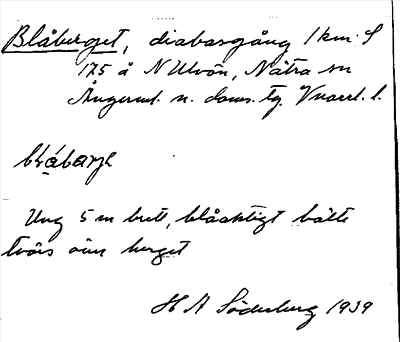 Blåberget, diabasgång 1 km S
175 å N Ulvön, Nätra sn
Ångerml. n. doms. tg. Vnorrl. l.
Ung 5 m brett, blåaktigt bälte
tvärs över berget
H A Söderberg 1939